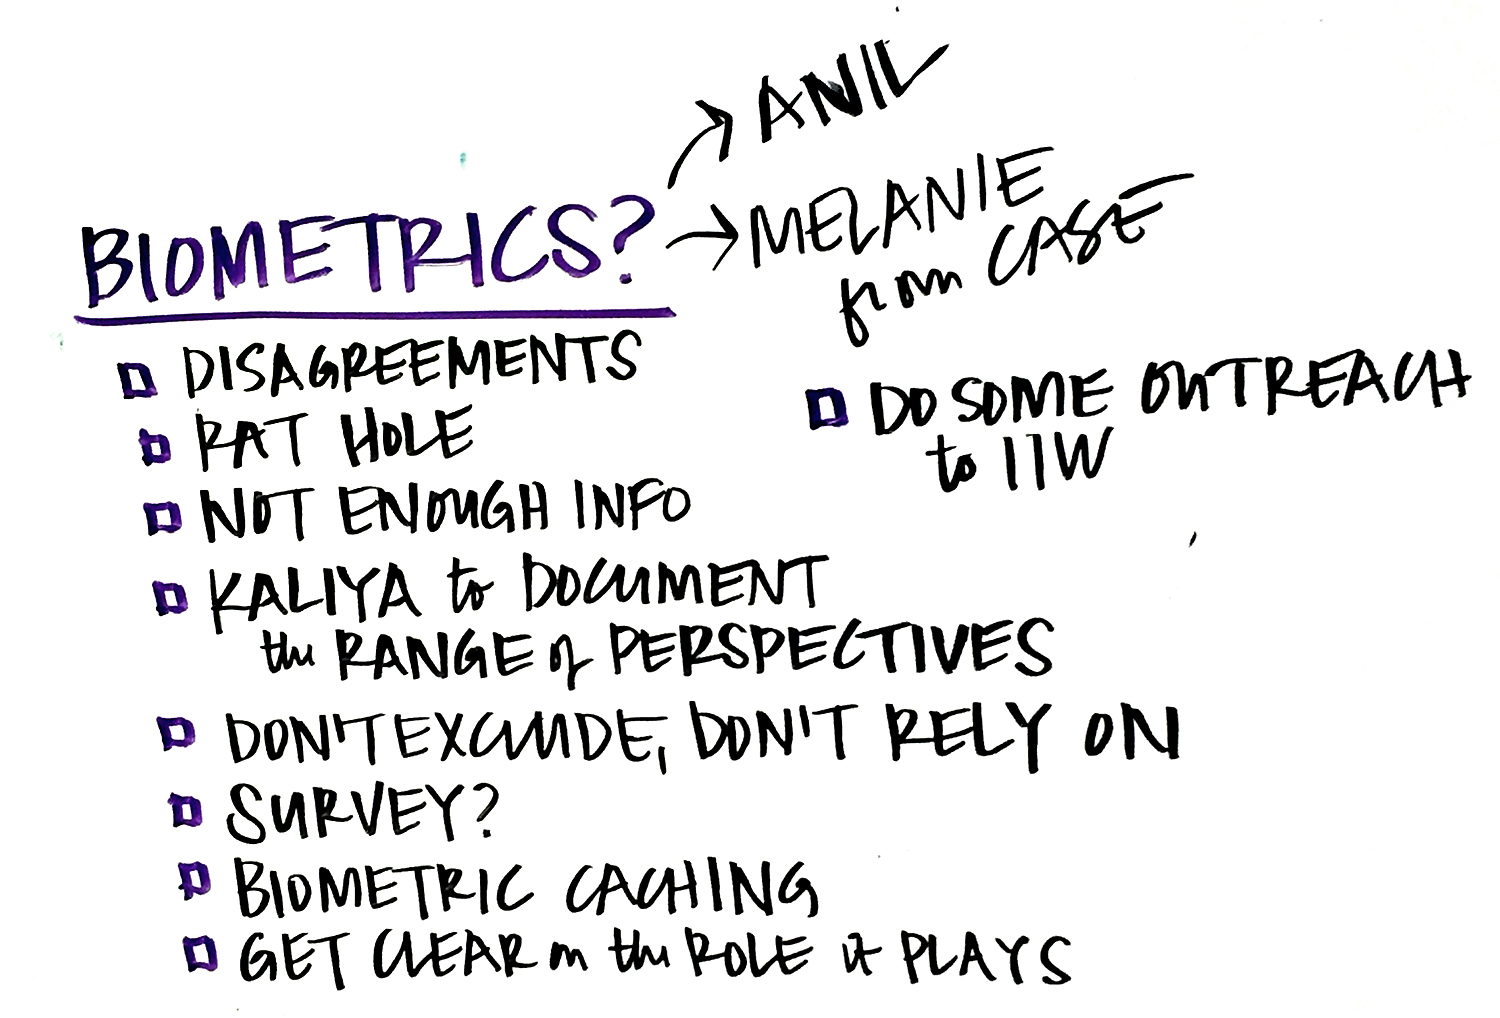 ANIL
BIOMETRICS?
MELANIE
from CASE
DISAGREEMENTS
RAT HOLE
NOT ENOUGH INFO
KALIYA to DOCUMENT
the RANGE of PERSPECTIVES
DON'T EXCLUDE, DON'T RELY ON
SURVEY?
BIOMETRIC CACHING
GET CLEAR on the ROLE it PLAYS
DO SOME OUTREACH
to IIW